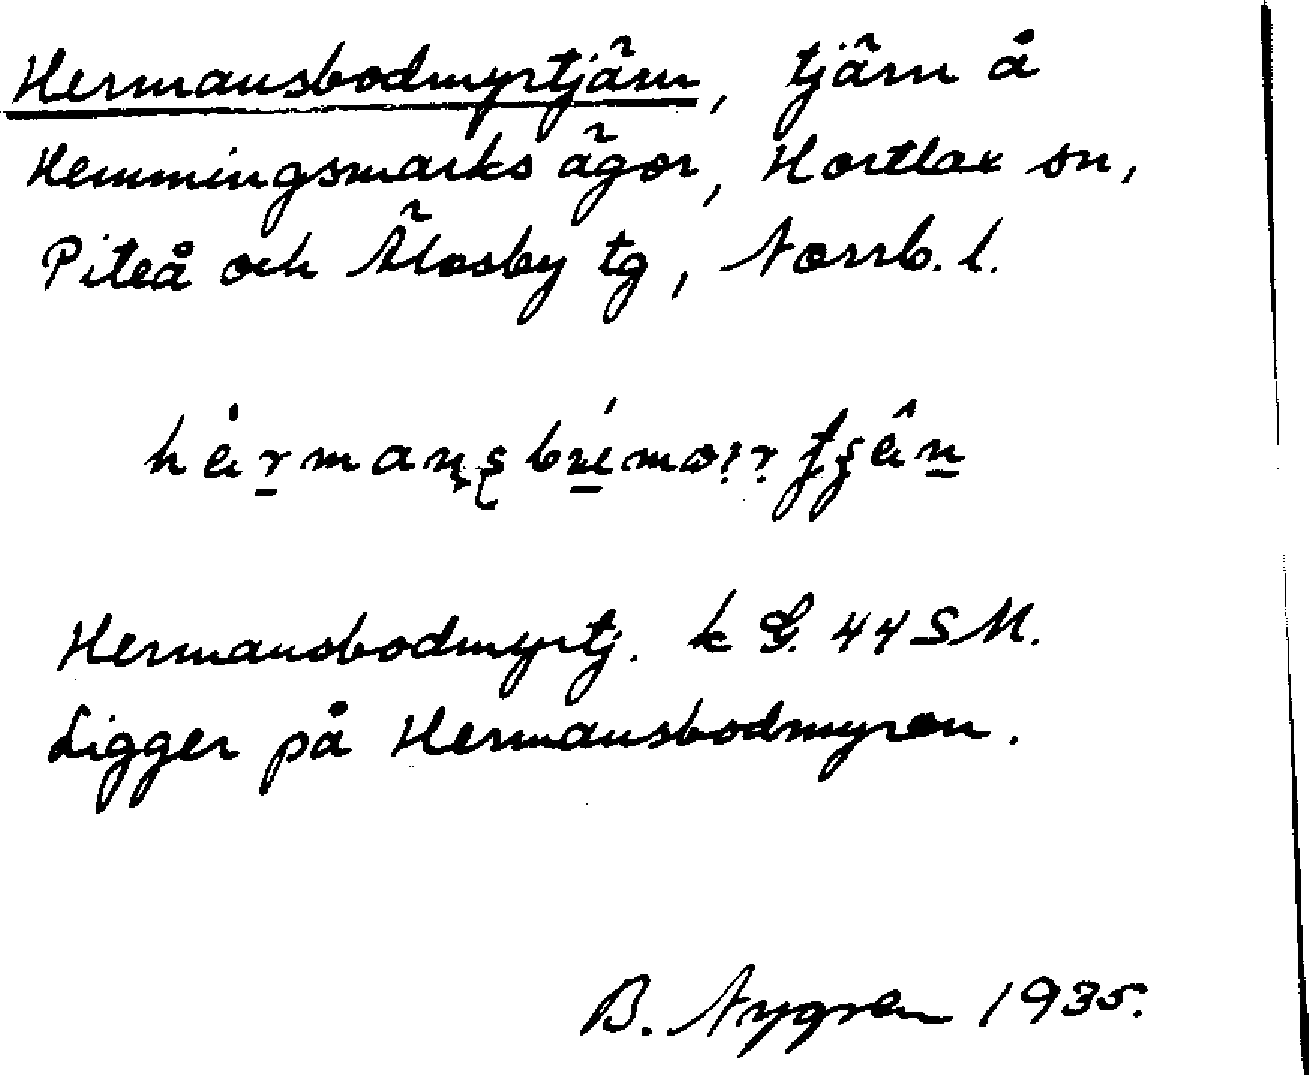 Hermansbodmyrtjärn, tjärn å
Hemmingsmarks ägor, Hortlax sn,
Piteå och Älvsby tg, Norrb. l.
Hermansbodmyrtj. k G. 44 SM.
Ligger på Hermansbodmyren.
B. Nygren 1935.